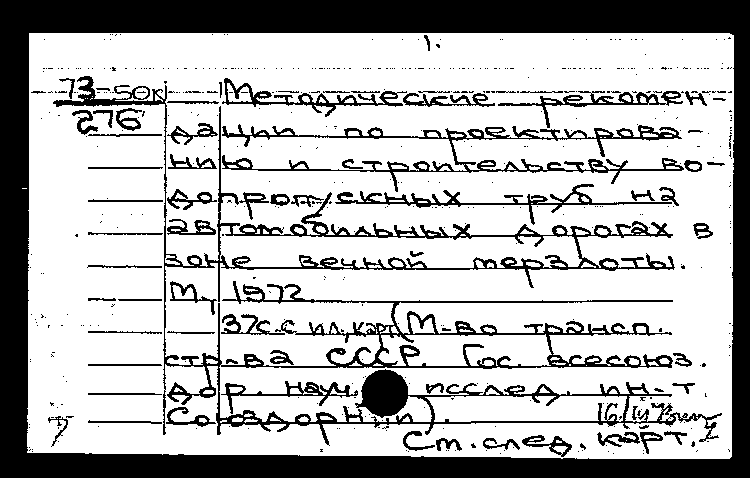 1.
73-50к
276
Методические рекомен-
дации по проектирова-
нию и строительству во-
допропускных труб на
автомобильных дорогах в
зоне вечной мерзлоты.
М., 1972.
37с. с ил., карт. (М-во трансп.
стр-ва СССР. Гос. всесоюз.
дор. науч. исслед. ин-т.
СоюздорНии).
16/III
См. след. карт.